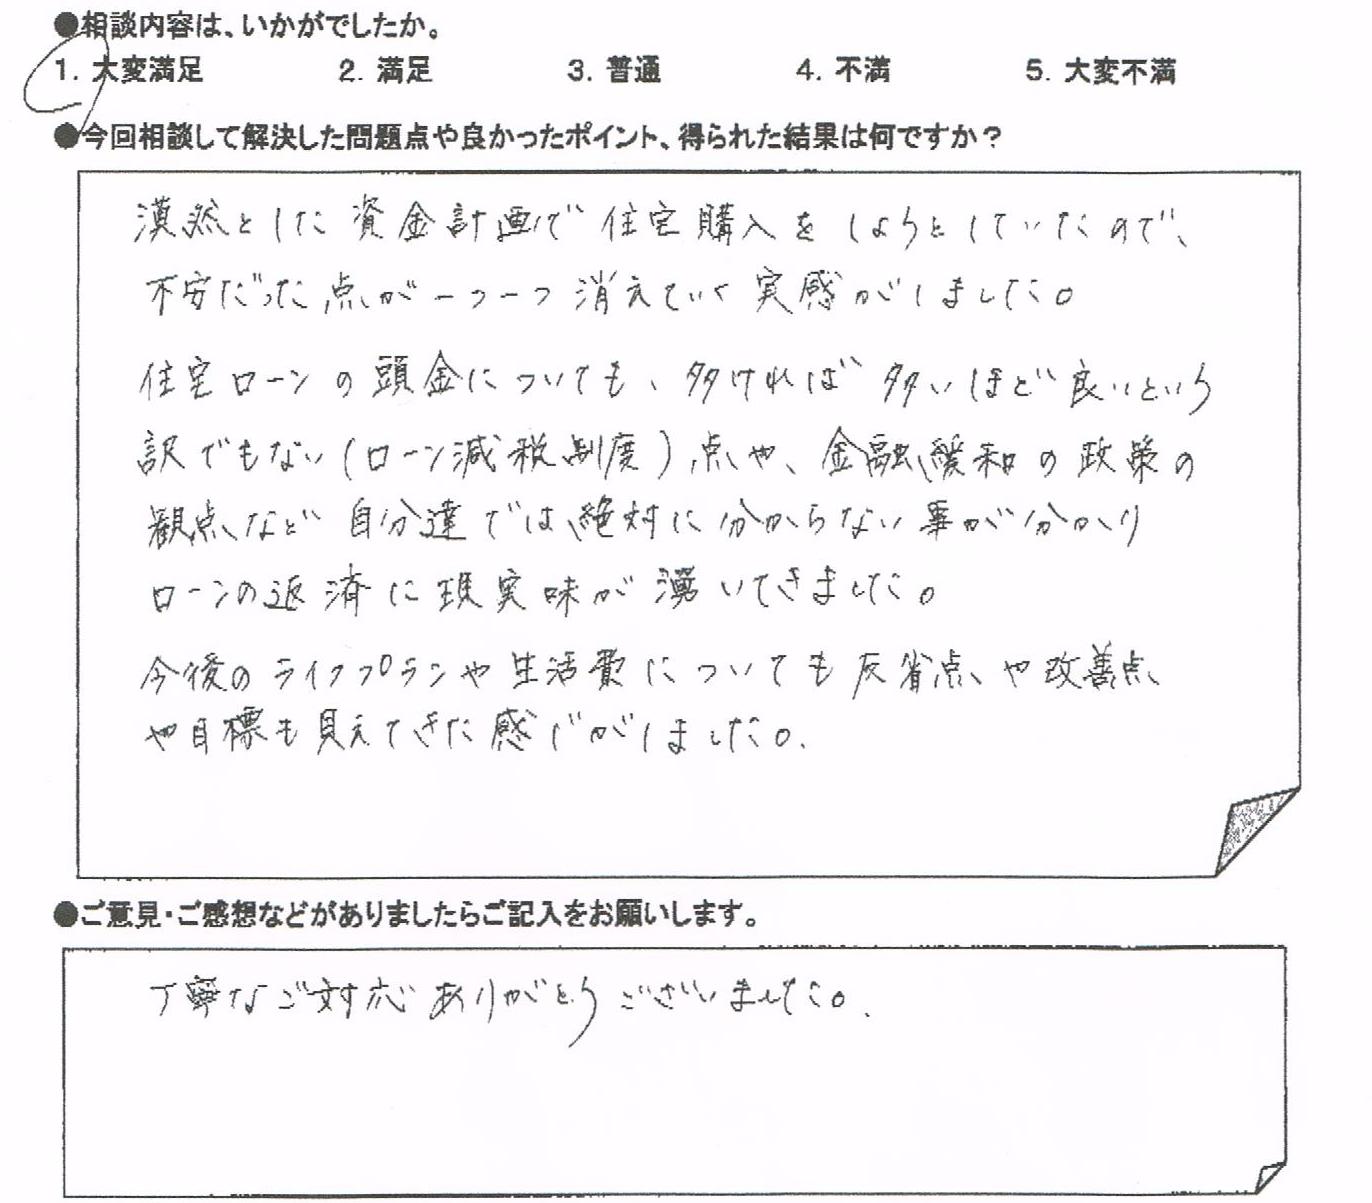 ●相談内容は、いかがでしたか。
1. 大変満足 2. 満足 3. 普通 4. 不満 5. 大変不満
●今回相談して解決した問題点や良かったポイント、得られた結果は何ですか？
漠然とした資金計画で住宅購入をしようとしていたので、
不安だった点が一つ一つ消えていく実感がしました。
住宅ローンの頭金についても、多ければ多いほど良いという
訳でもない(ローン減税制度)点や、金融緩和の政策の
観点など自分達では絶対に分からない事が分かり
ローンの返済に現実味が湧いてきました。
今後のライフプランや生活費についても反省点や改善点
や目標も見えてきた感じがしました。
●ご意見・ご感想などがありましたらご記入をお願いします。
丁寧なご対応ありがとうございました。